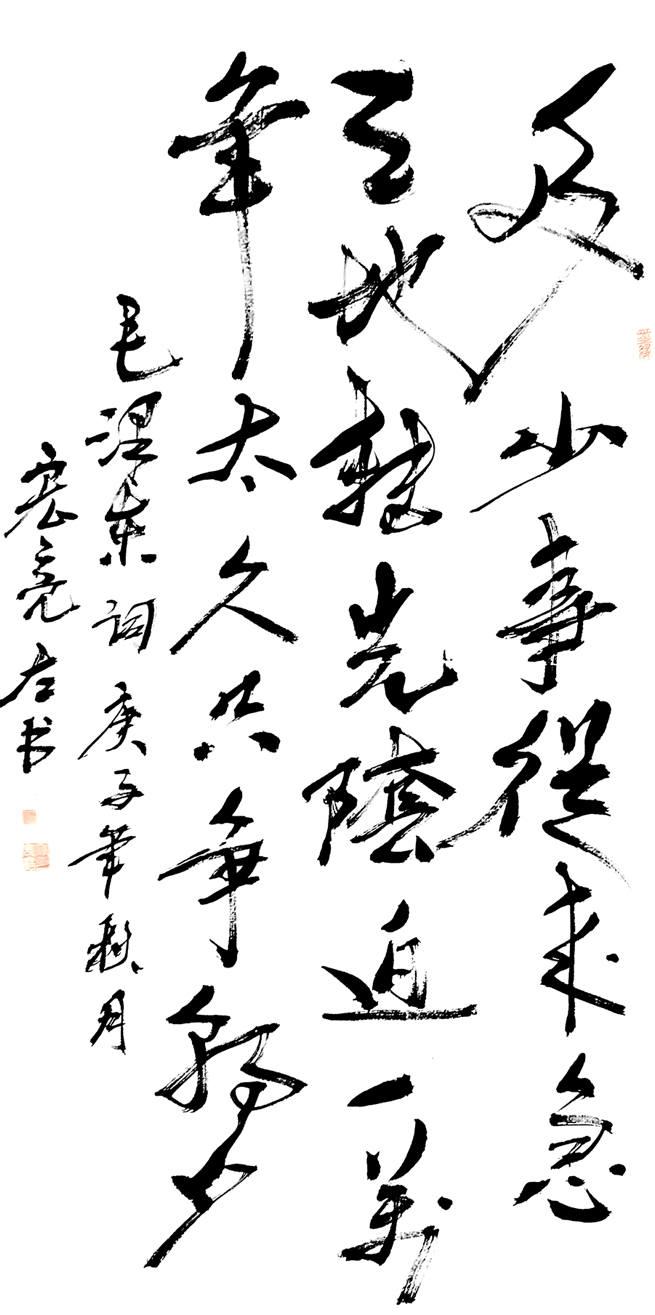 多少事從来急
天地轉光陰迫一萬
年太久只争朝夕
毛泽東词庚子年秋月
宏亮左书